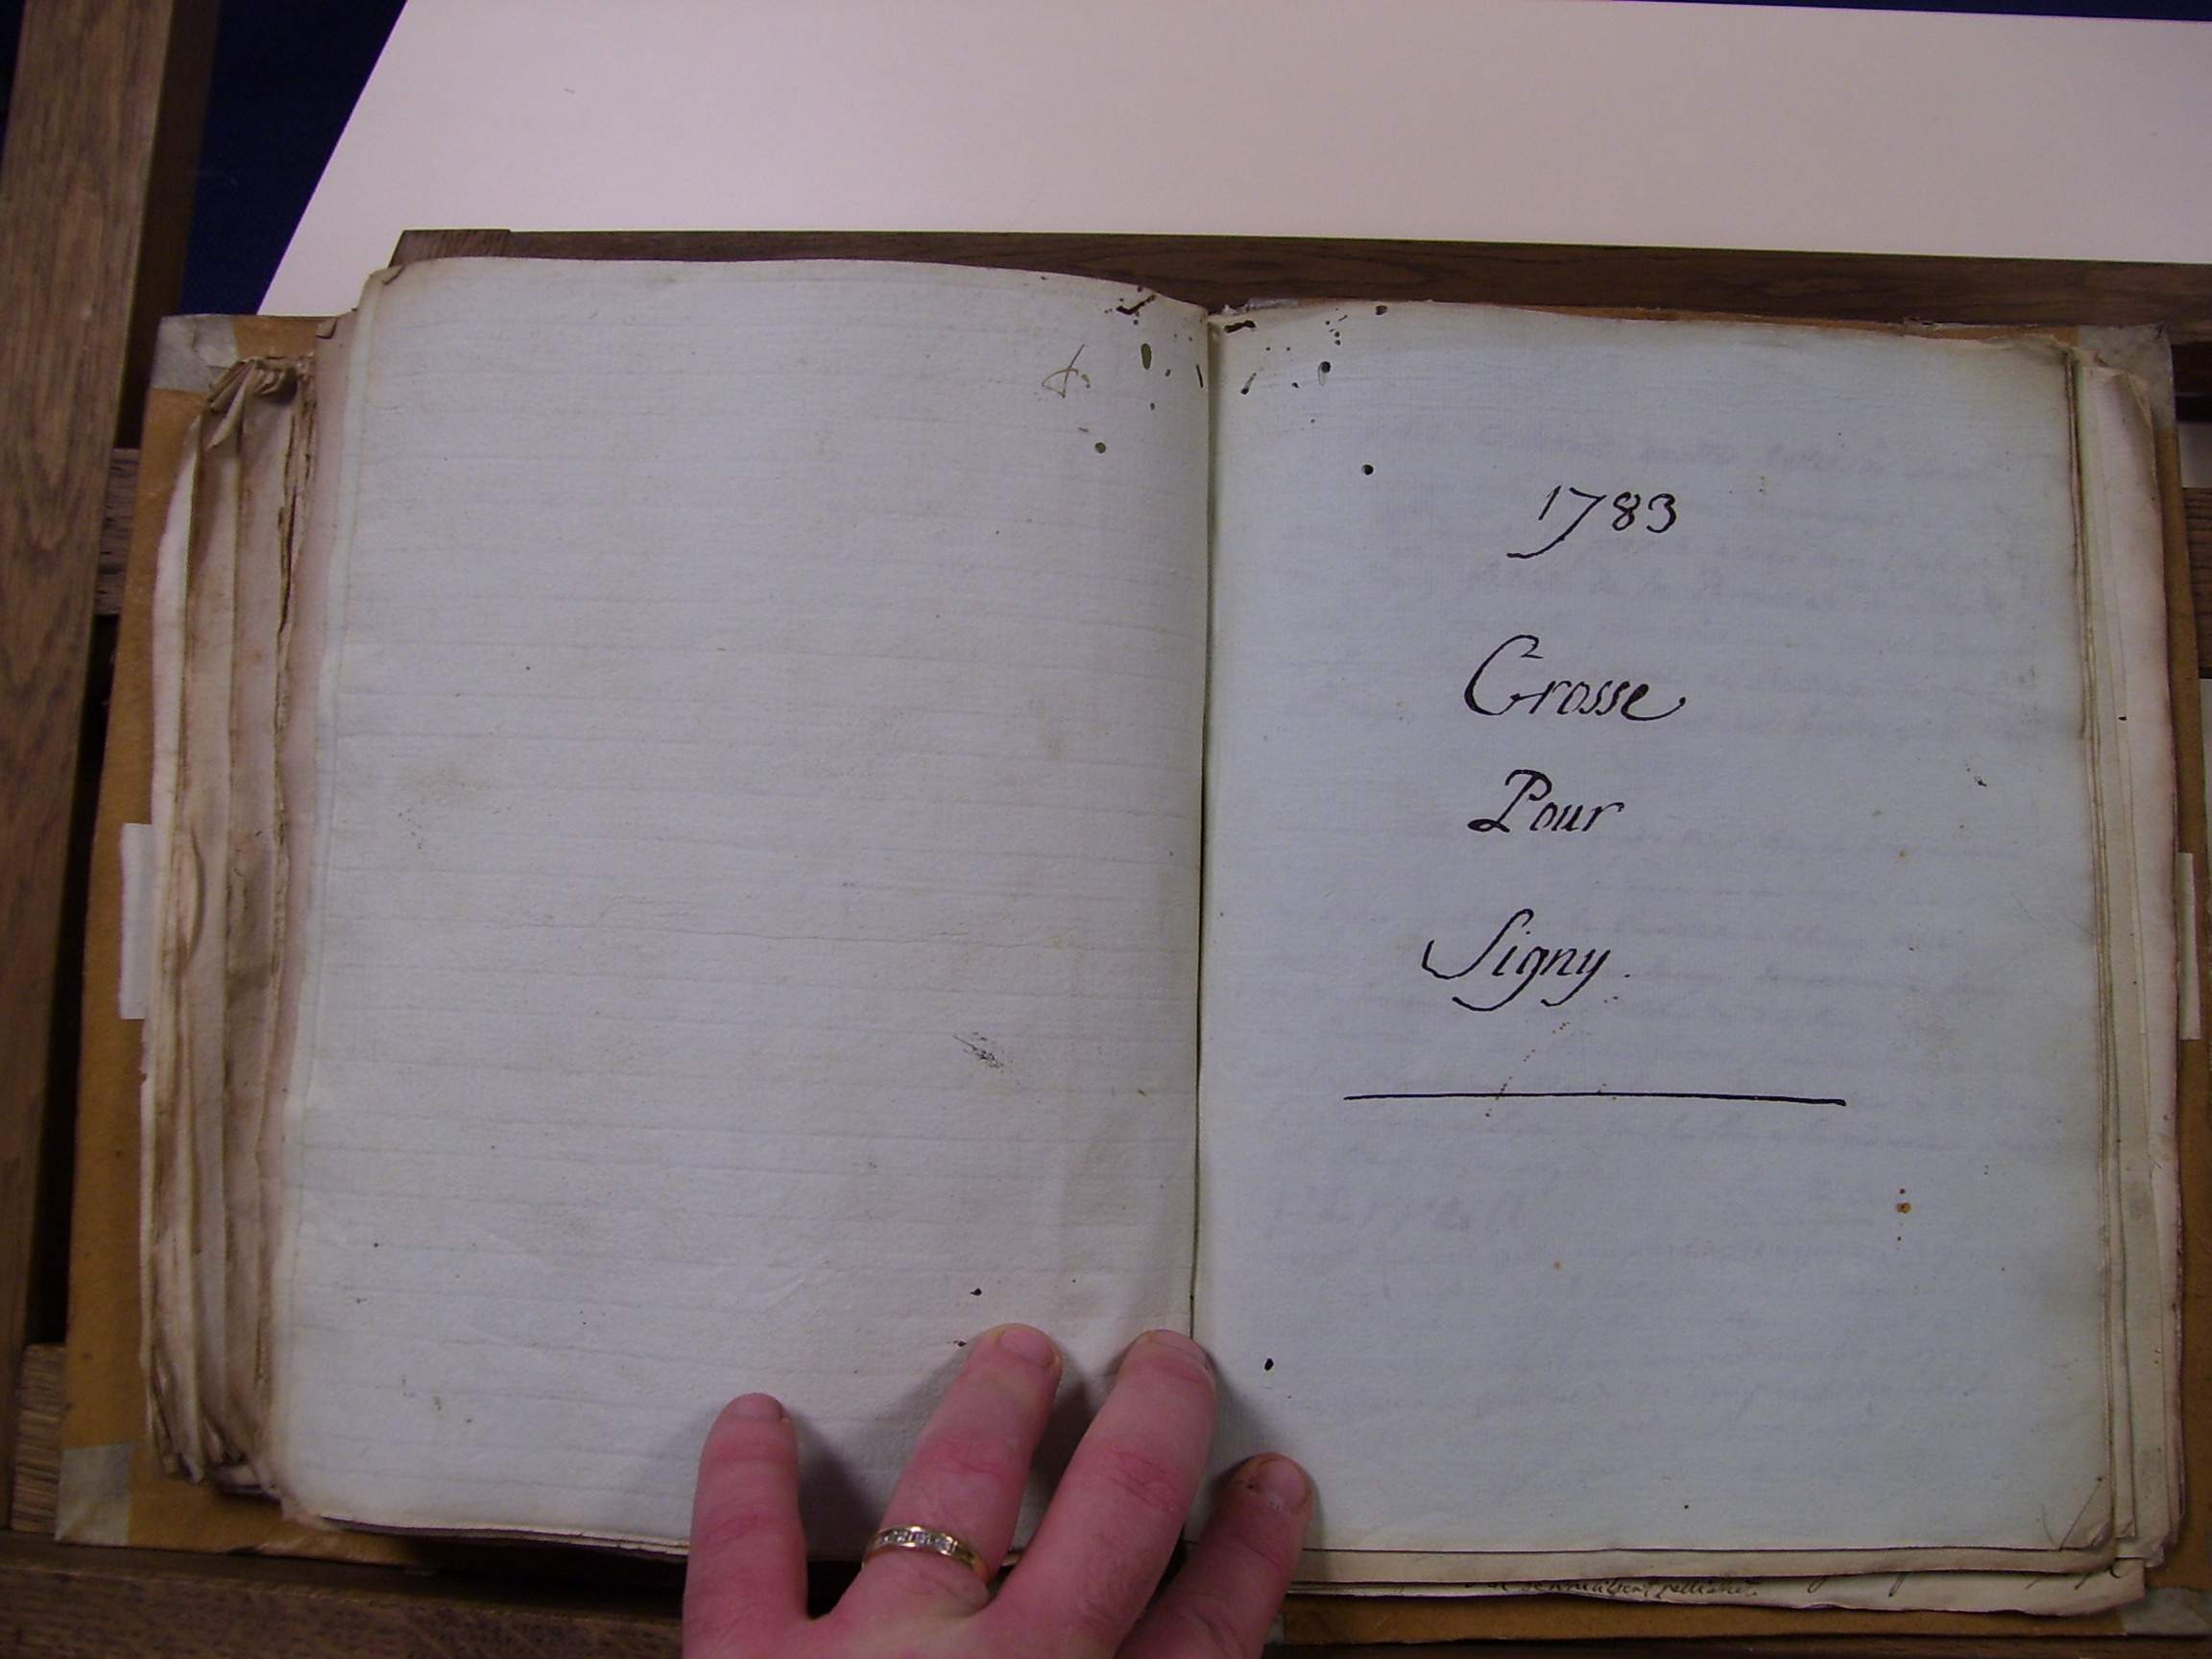 1783
Grosse
Pour
Signy.